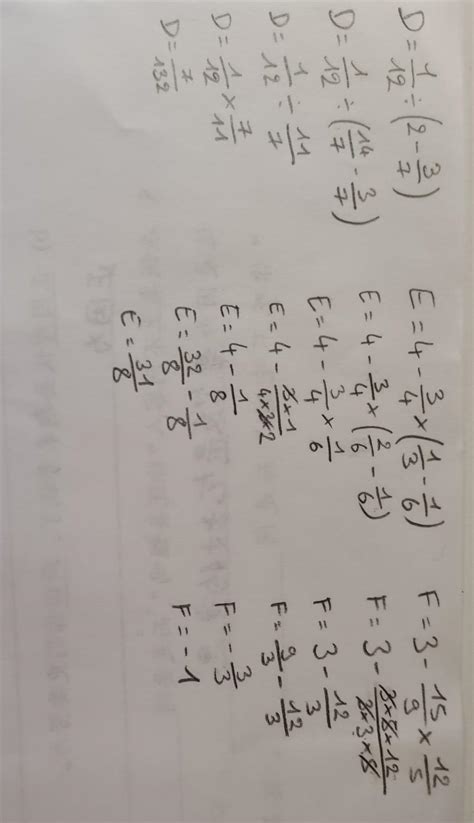 D = 1/12 ÷ (2 - 3/7)
D = 1/12 ÷ (14/7 - 3/7)
D = 1/12 ÷ 11/7
D = 1/12 × 7/11
D = 7/132
E = 4 - 3/4 × (1/3 - 1/6)
E = 4 - 3/4 × (2/6 - 1/6)
E = 4 - 3/4 × 1/6
E = 4 - (3×1)/(4×3×2)
E = 4 - 1/8
E = 32/8 - 1/8
E = 31/8
F = 3 - 15/9 × 12/5
F = 3 - (3×5×12)/(3×3×5)
F = 3 - 12/3
F = 9/3 - 12/3
F = -3/3
F = -1